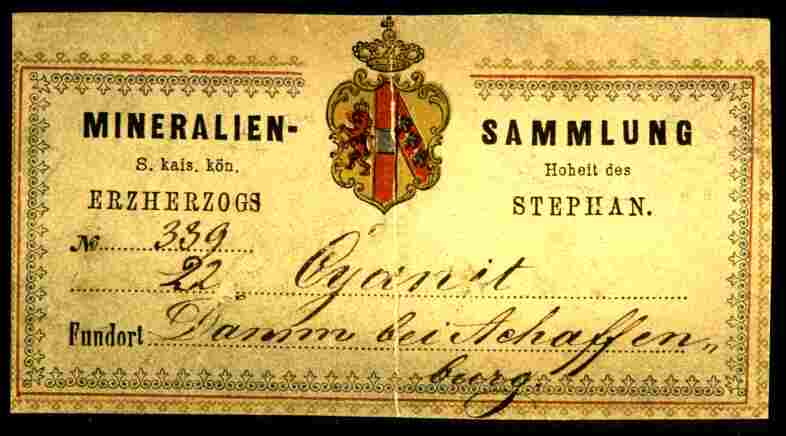 MINERALIEN- SAMMLUNG
S. kais. kön. Hoheit des
ERZHERZOGS STEPHAN.
No 339
22 Cyanit
Fundort Damm bei Aschaffen„
burg.